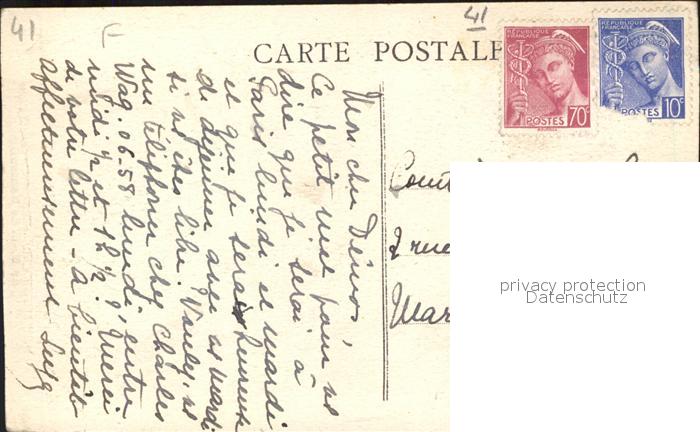 41
41
CARTE POSTALE
RÉPUBLIQUE FRANÇAISE
POSTES 70c
RÉPUBLIQUE FRANÇAISE
POSTES 10c
Mon cher
Ce petit mot pour
dire que je serai à
Paris lundi et mardi
et que je serais heureux
de déjeuner avec mardi
si es libre. 
me téléphoner chez Charles
Wag. 06.58 lundi entre
midi ½ et 1h ½. Merci
de votre lettre - A bientôt
affectueusement
2 rue
privacy protection
Datenschutz